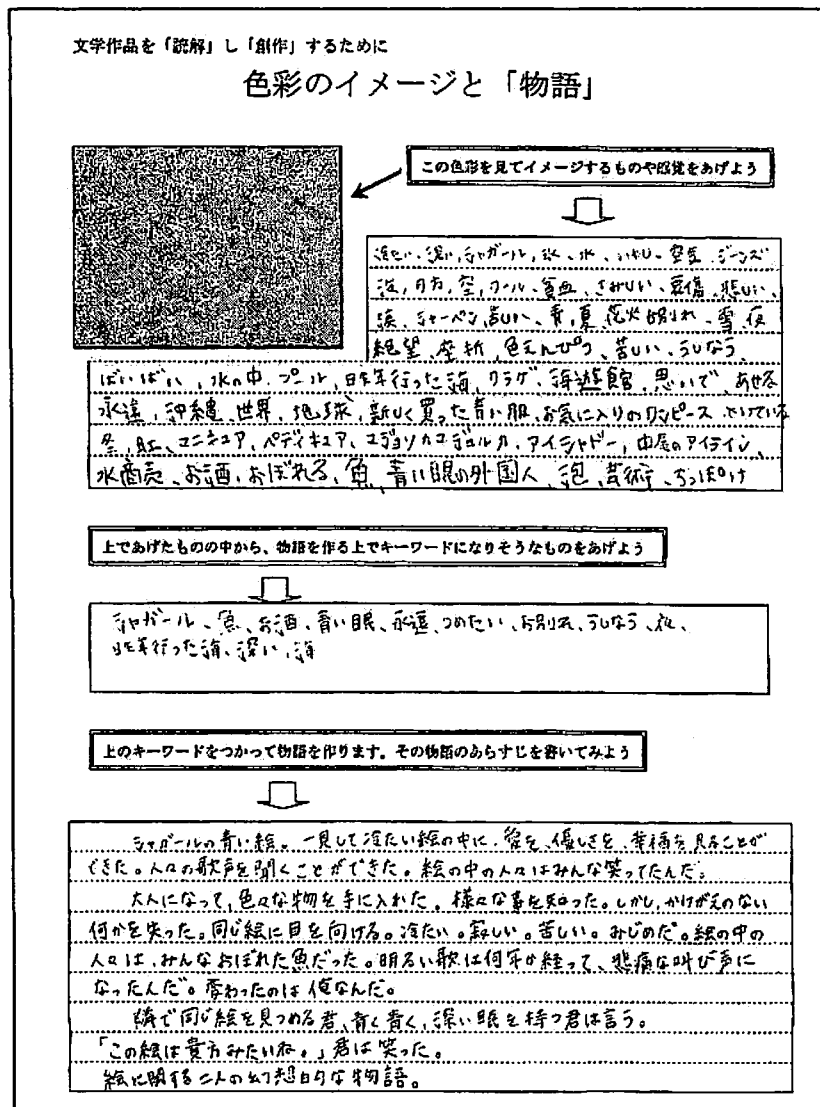 文学作品を「読解」し「創作」するために
色彩のイメージと「物語」
この色彩を見てイメージするものや感覚をあげよう
深い、シャガール、氷、水、空気、ジーンズ
海、月方、空、クール、貧血、さみしい、哀傷、悲しい、
涙、シャーペン、青い、青、夏、花火、お別れ、雪、夜
絶望、挫折、色えんぴつ、苦しい、うしなう、
ばいばい、水の中、プール、昨年行った海、クラゲ、海遊館、思いで、あせる
永遠、沖縄、世界、地球、新しく買った青い服、お気に入りのワンピース
マニキュア、ペディキュア、マジョリカマジョルカ、アイシャドー、中尾のアイライン、
水商売、お酒、おぼれる、魚、青い眼の外国人、泡、芸術、ちっぽけ
上であげたものの中から、物語を作る上でキーワードになりそうなものをあげよう
シャガール、魚、お酒、青い眼、永遠、つめたい、お別れ、うしなう、夜、
昨年行った海、深い、海
上のキーワードをつかって物語を作ります。その物語のあらすじを書いてみよう
シャガールの青い絵。一見して冷たい絵の中に、愛を、優しさを、幸福を見ることが
できた。人々の歌声を聞くことができた。絵の中の人々はみんな笑ってたんだ。
大人になって、色々な物を手に入れた。様々な事を知った。しかし、かけがえのない
何かを失った。同じ絵に目を向ける。冷たい。寂しい。苦しい。みじめだ。絵の中の
人々は、みんなおぼれた魚だった。明るい歌は何年か経って、悲痛な叫び声に
なったんだ。変わったのは俺なんだ。
隣で同じ絵を見つめる君、青く青く、深い眼を持つ君は言う。
「この絵は貴方みたいね。」君は笑った。
絵に関する二人の幻想的な物語。